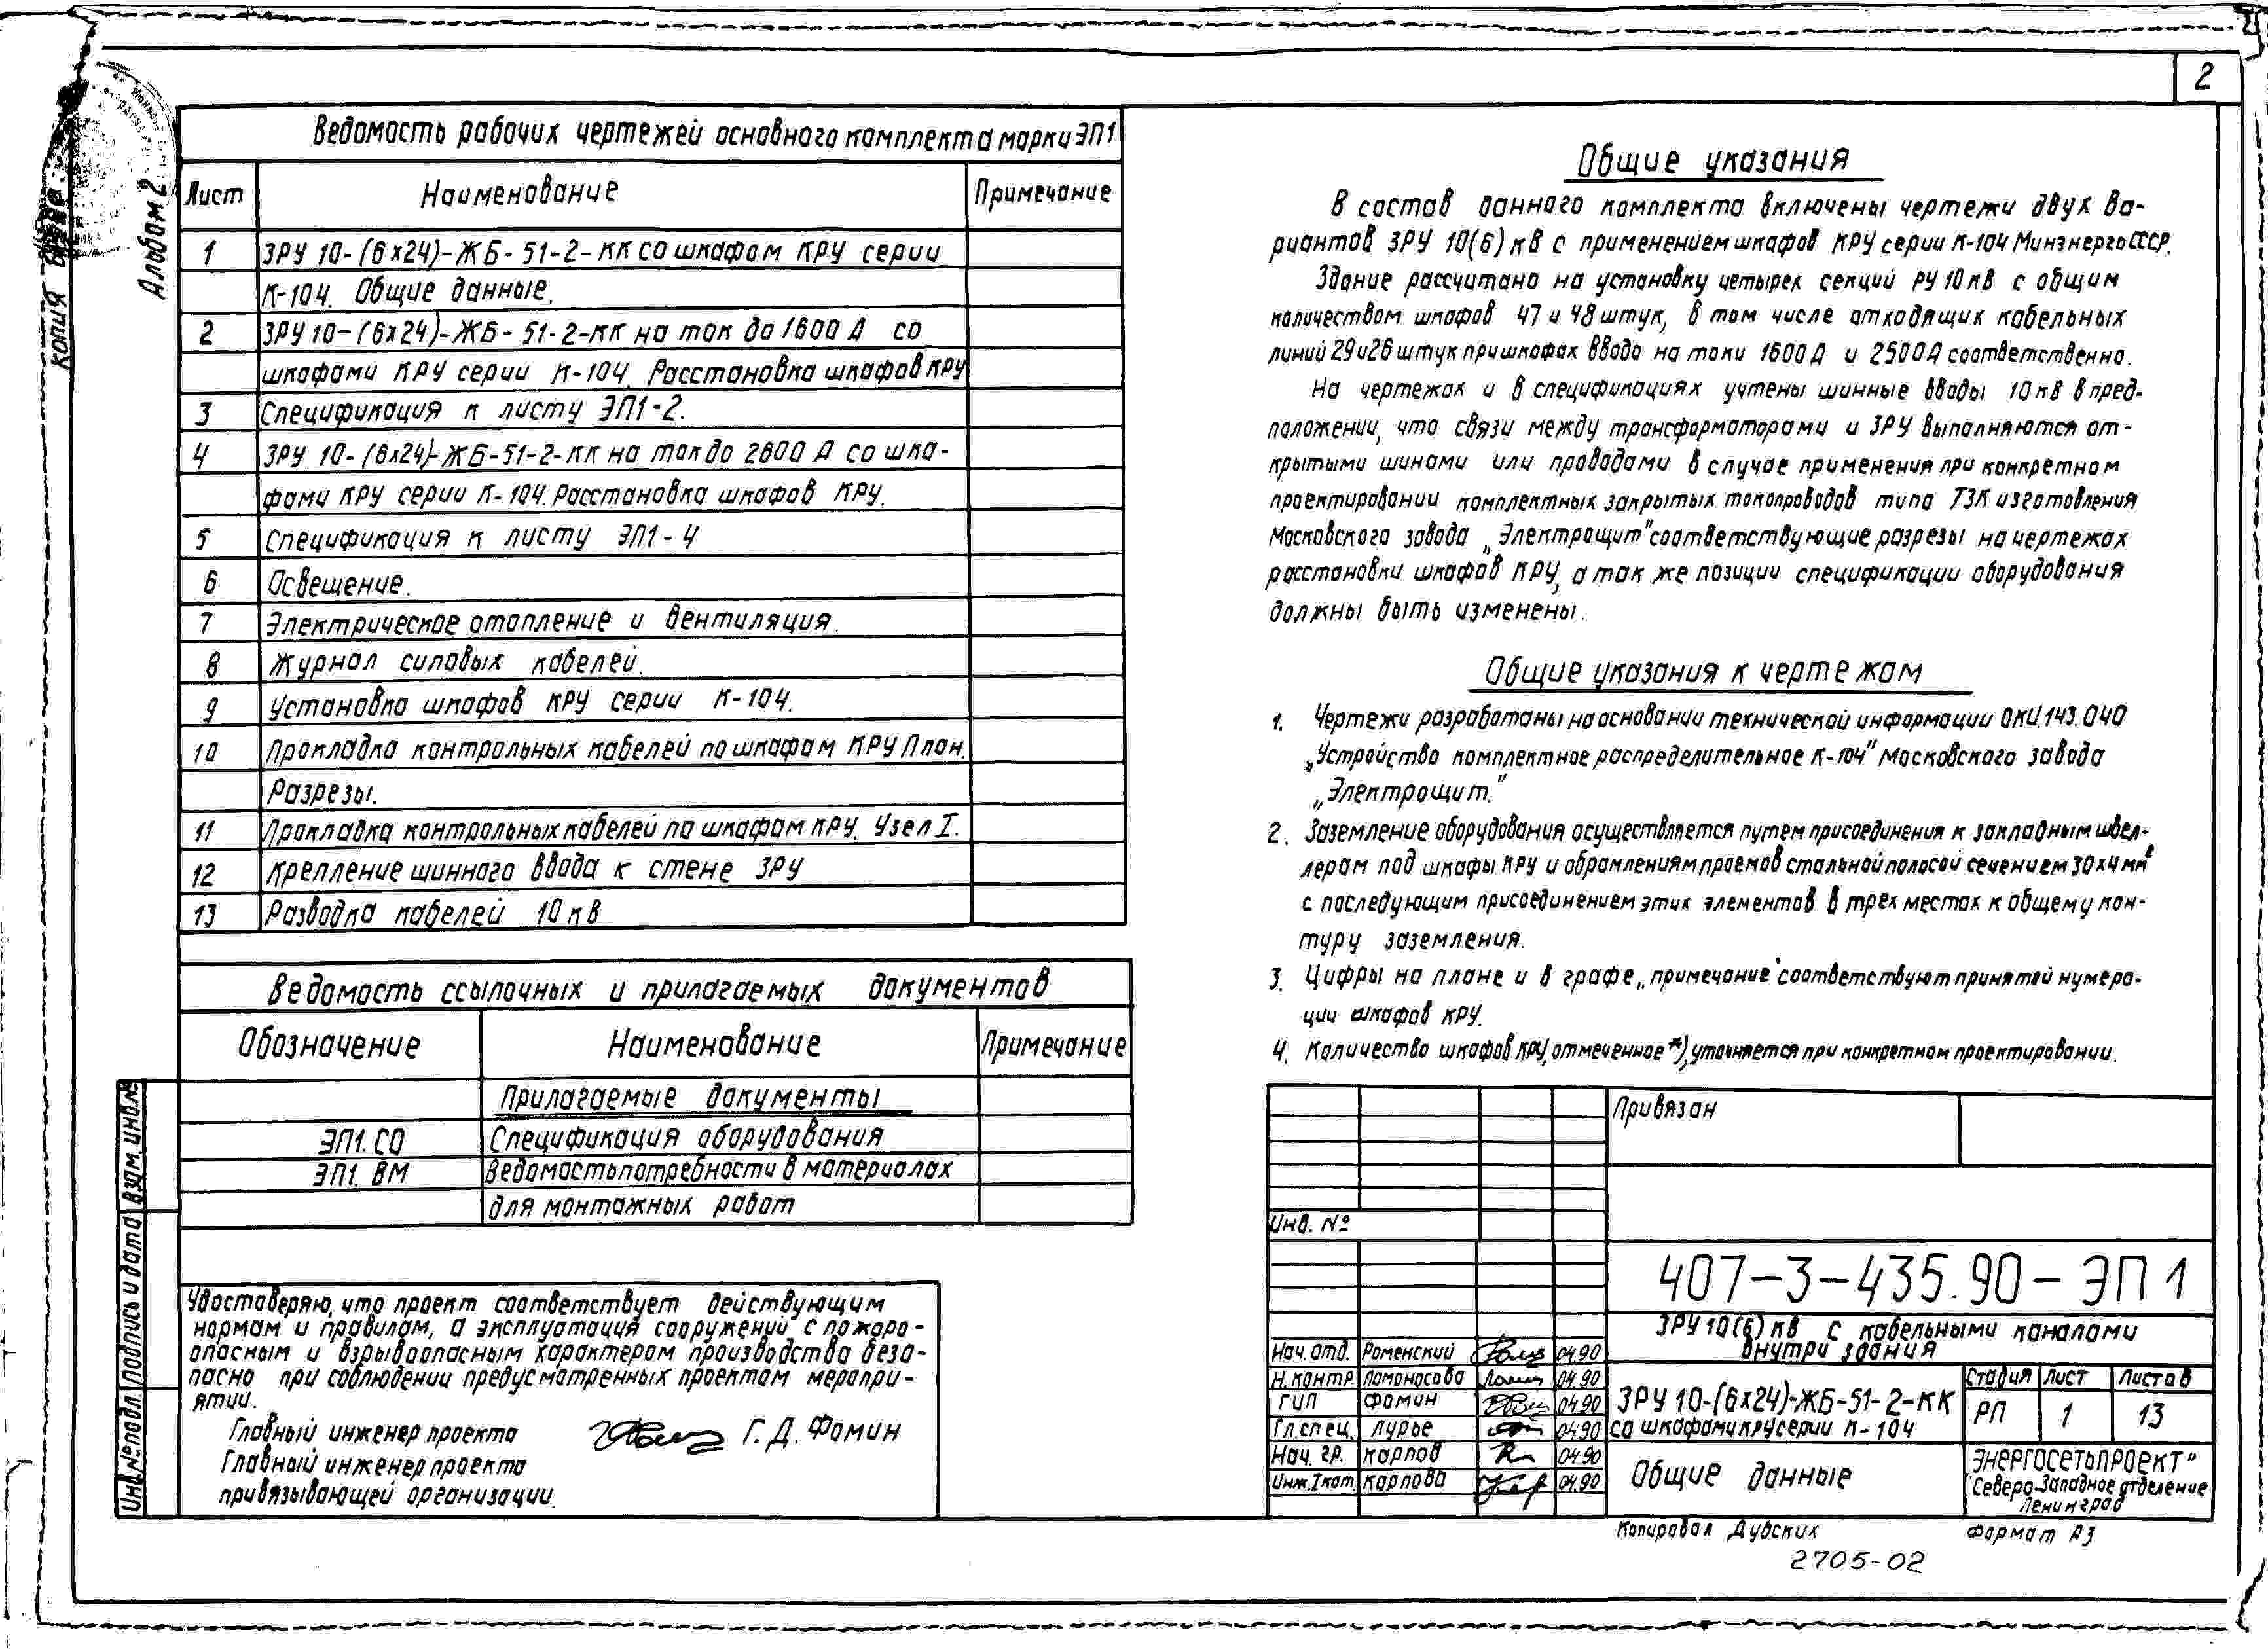 2
копия
Альбом 2
Ведомость рабочих чертежей основного комплекта марки ЭП1
Лист Наименование Примечание
1 ЗРУ 10-(6х24)-ЖБ-51-2-КК со шкафам КРУ серии
К-104. Общие данные.
2 ЗРУ 10-(6х24)-ЖБ-51-2-КК на ток до 1600 А со
шкафами КРУ серии К-104. Расстановка шкафов КРУ
3 Спецификация к листу ЭП1-2.
4 ЗРУ 10-(6х24)-ЖБ-51-2-КК на ток до 2600 А со шка-
фами КРУ серии К-104. Расстановка шкафов КРУ.
5 Спецификация к листу ЭП1-4
6 Освещение.
7 Электрическое отопление и вентиляция.
8 Журнал силовых кабелей.
9 Установка шкафов КРУ серии К-104.
10 Прокладка контрольных кабелей по шкафам КРУ План.
Разрезы.
11 Прокладка контрольных кабелей по шкафам КРУ. Узел I.
12 Крепление шинного ввода к стене ЗРУ
13 Разводка кабелей 10 кВ
Ведомость ссылочных и прилагаемых документов
Обозначение Наименование Примечание
Прилагаемые документы
ЭП1.СО Спецификация оборудования
ЭП1.ВМ Ведомость потребности в материалах
для монтажных работ
Удостоверяю, что проект соответствует действующим
нормам и правилам, а эксплуатация сооружений с пожаро-
опасным и взрывоопасным характером производства безо-
пасно при соблюдении предусмотренных проектом меропри-
ятии.
Главный инженер проекта Г.Д. Фомин
Главный инженер проекта
привязывающей организации.
Инв.№ подл. Подпись и дата Взам.инв.№
Общие указания
В состав данного комплекта включены чертежи двух ва-
риантов ЗРУ 10(6) кВ с применением шкафов КРУ серии К-104 Минэнерго СССР.
Здание рассчитано на установку четырех секций РУ 10 кВ с общим
количеством шкафов 47 и 48 штук, в том числе отходящих кабельных
линий 29 и 26 штук при шкафах ввода на токи 1600 А и 2500 А соответственно.
На чертежах и в спецификациях учтены шинные вводы 10 кВ в пред-
положении, что связи между трансформаторами и ЗРУ выполняются от-
крытыми шинами или проводами в случае применения при конкретном
проектировании комплектных закрытых токопроводов типа ТЗК изготовления
Московского завода „Электрощит" соответствующие разрезы на чертежах
расстановки шкафов КРУ, а так же позиции спецификации оборудования
должны быть изменены.
Общие указания к чертежам
1. Чертежи разработаны на основании технической информации ОКИ.143.040
„Устройство комплектное распределительное К-104" Московского завода
„Электрощит."
2. Заземление оборудования осуществляется путем присоединения к закладным швел-
лерам под шкафы КРУ и обрамлениям проемов стальной полосой сечением 30х4 мм²
с последующим присоединением этих элементов в трех местах к общему кон-
туру заземления.
3. Цифры на плане и в графе „примечание" соответствуют принятой нумера-
ции шкафов КРУ.
4. Количество шкафов КРУ, отмеченное *), уточняется при конкретном проектировании.
Привязан
Инв. №
407-3-435.90-ЭП1
ЗРУ 10(6) кВ с кабельными каналами
внутри здания
Нач. отд. Роменский 04.90
Н. контр. Ломоносова 04.90
ГИП Фомин 04.90
Гл. спец. Лурье 04.90
Нач. гр. Карпов 04.90
Инж. I кат. Карпова 04.90
ЗРУ 10-(6х24)-ЖБ-51-2-КК
со шкафами КРУ серии К-104
Стадия Лист Листов
РП 1 13
Общие данные
ЭНЕРГОСЕТЬПРОЕКТ"
Северо-Западное отделение
Ленинград
Копировал Дубских Формат А3
2705-02